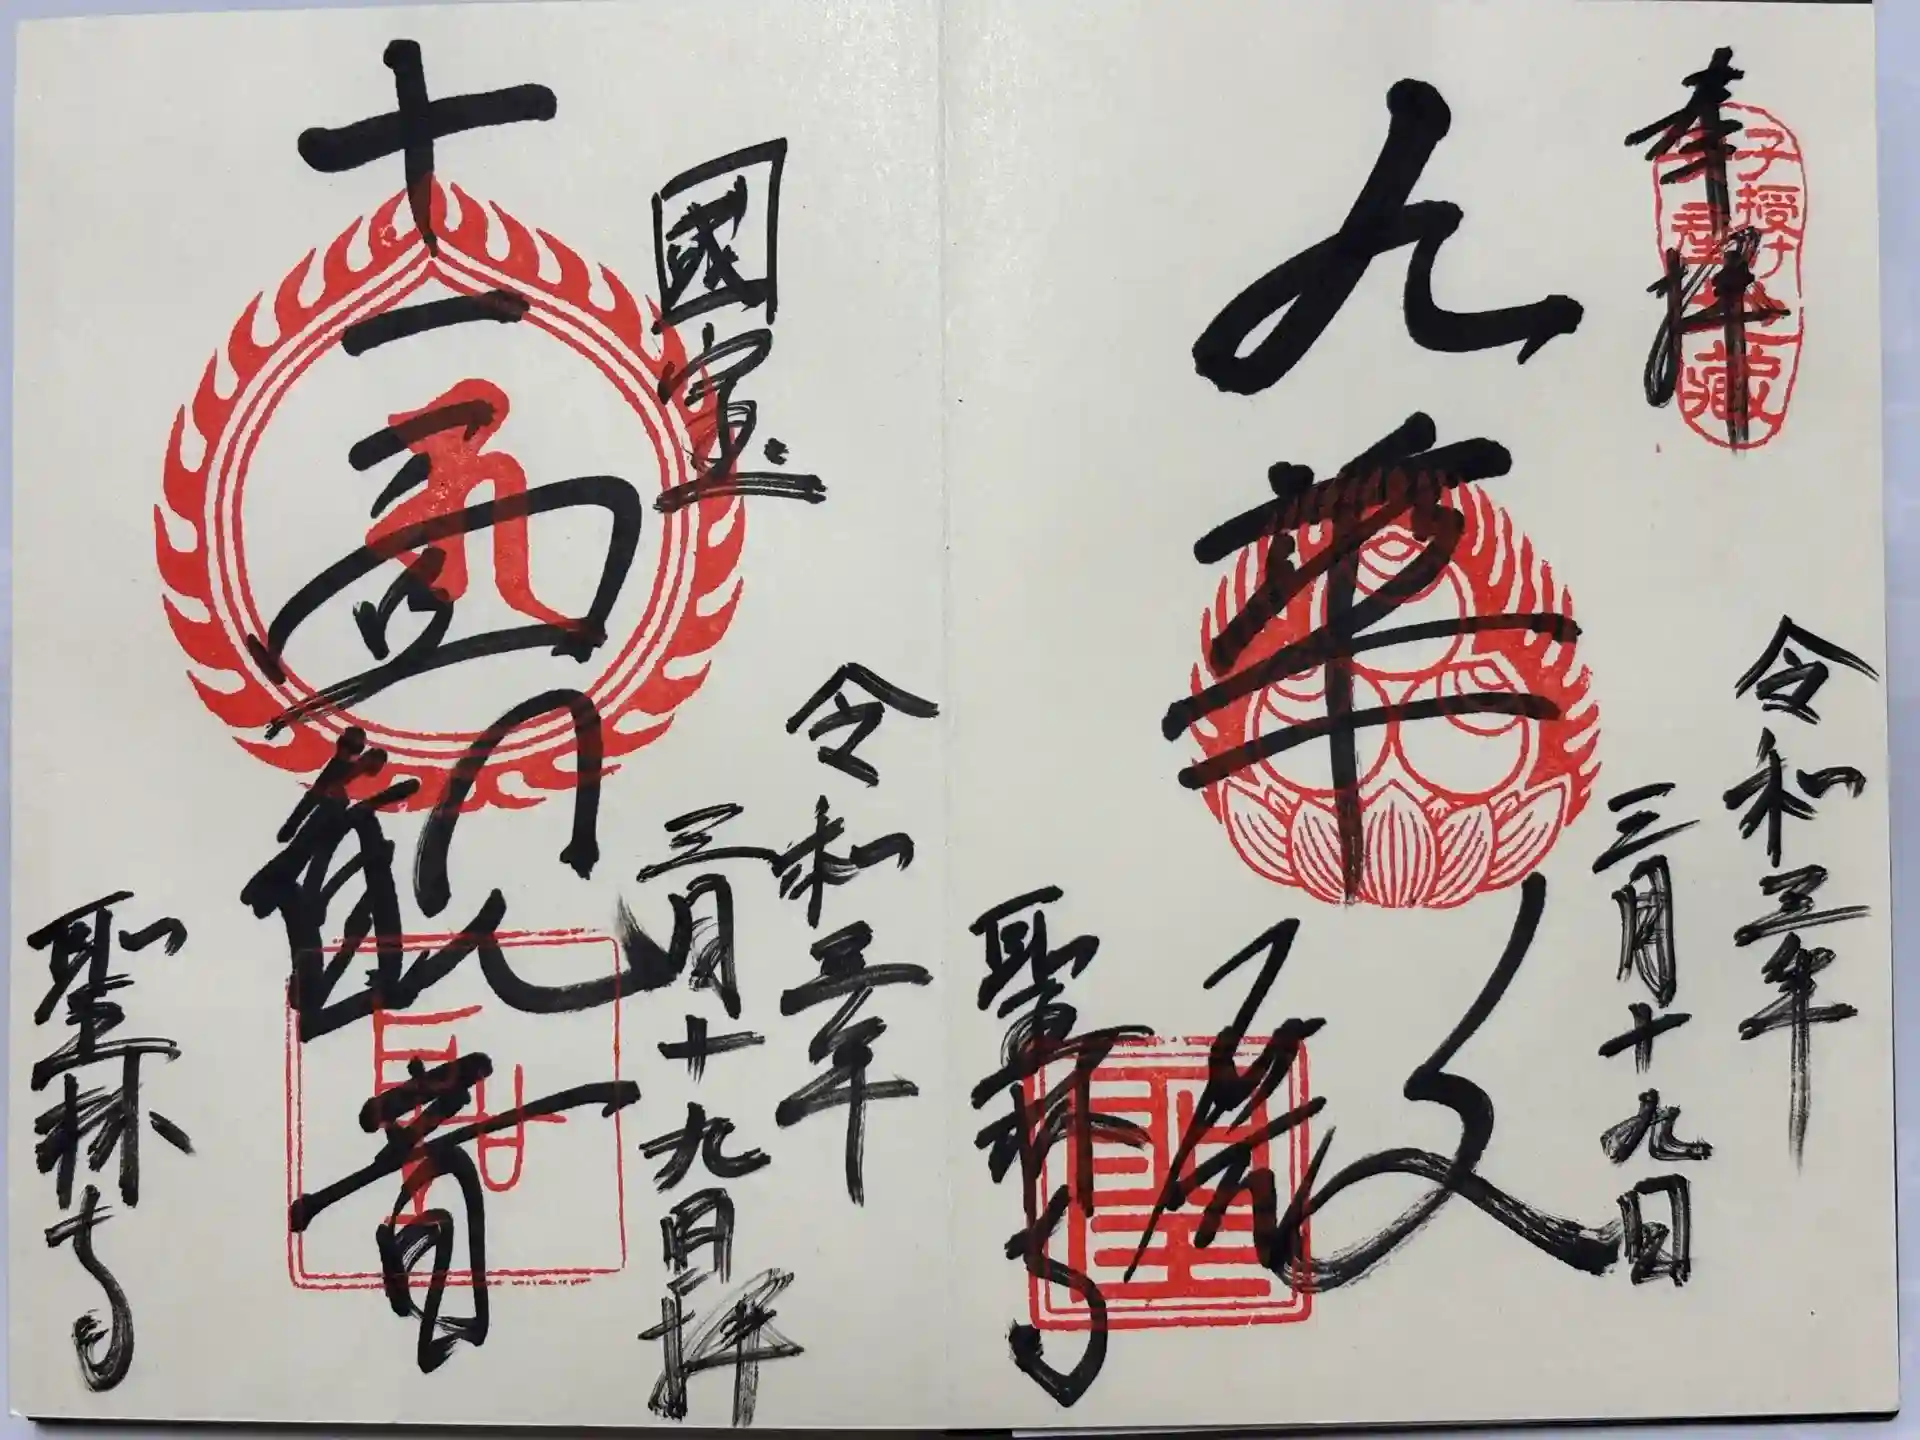 奉拝
子授け
子産
地蔵
令和三年
三月十九日
九華殿
聖林寺
聖
國宝
令和三年
三月十九日拝
十一面観音
聖林寺